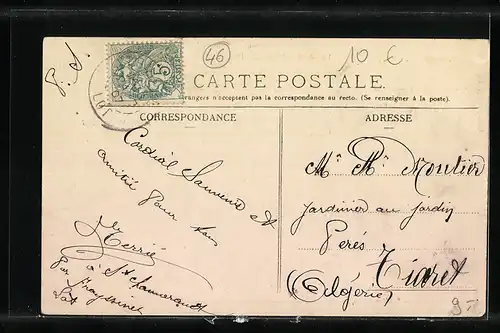 P. S.
46
10 €
5
LOT
CARTE POSTALE.
étrangers n'acceptent pas la correspondance au recto. (Se renseigner à la poste).
CORRESPONDANCE
ADRESSE
Cordial Souvenir et
amitié pour tous
Mr Moutier
Jardinier au jardin
Perés
Tiaret
(Algérie)
à St Chamarand
par Frayssinet
Lot
9-